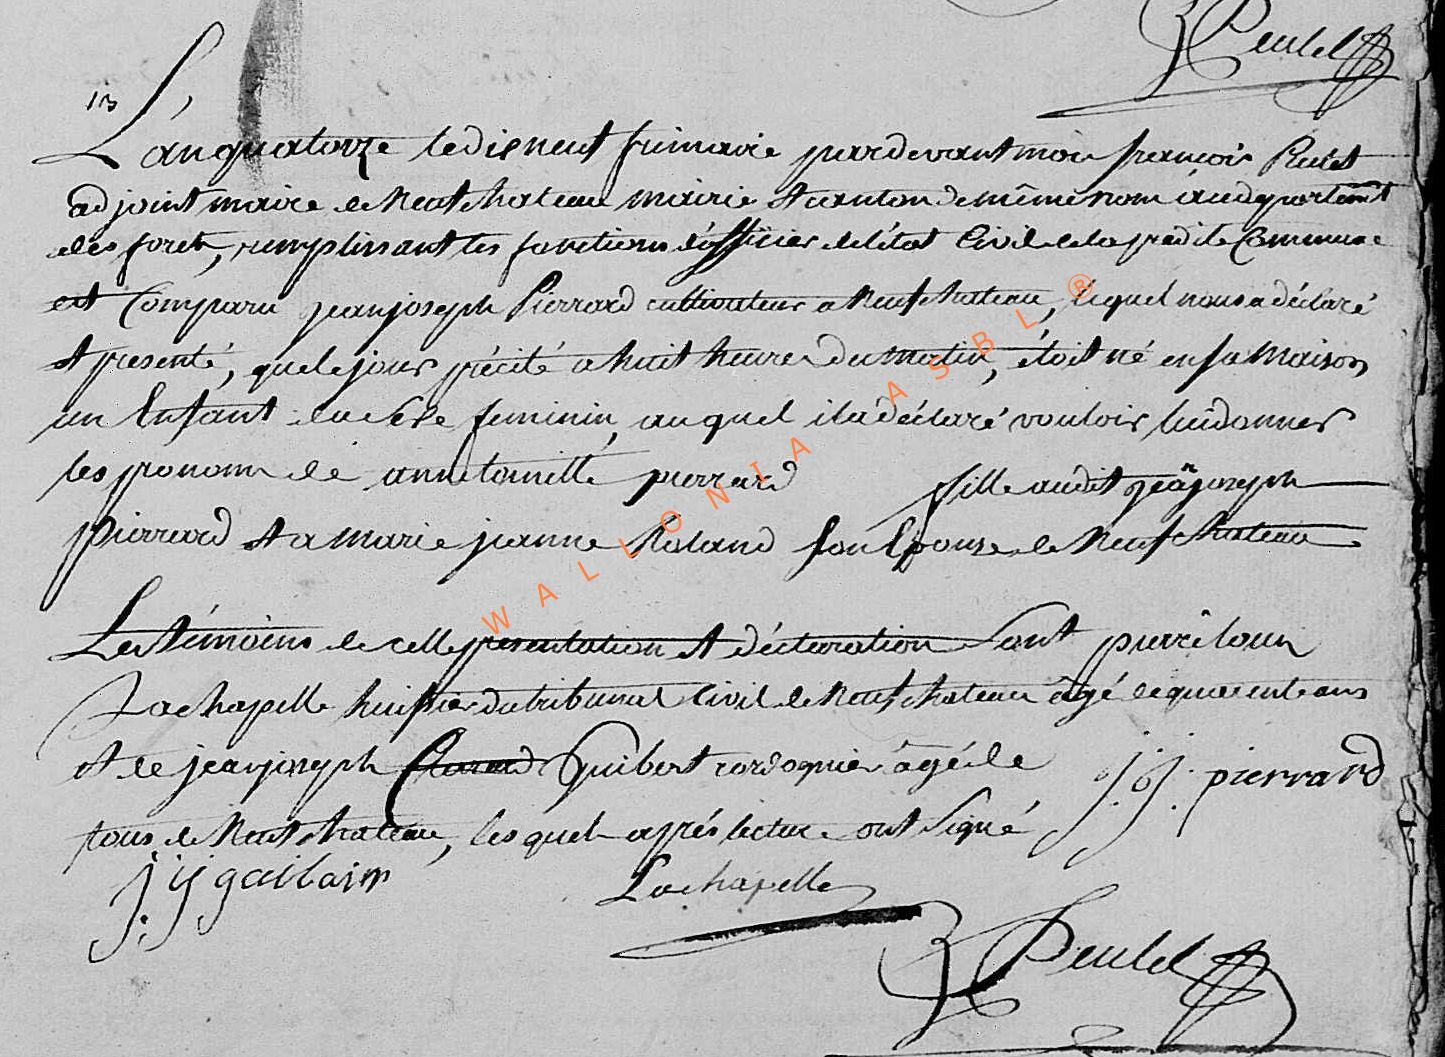 Peulet
13
L'an quatorze le dixneuf frimaire pardevant moi françois Peulet
adjoint maire de Neufchateau mairie et canton de même nom au departemt
des forets, remplissant les fonctions d'officier de l'état Civil de la predite Commune
est Comparu jean joseph Pierrard cultivateur a Neufchateau, lequel nous a déclaré
et presenté, que le jour précité a huit heures du matin, étoit né en sa Maison
un Enfant du sexe feminin, auquel il a déclaré vouloir lui donner
les pronom de anne pierrard fille audit jean joseph
pierrard et a marie jeanne Roland son Epouse de Neufchateau
Les témoins de celle presentation et déclaration sont pierre louis
Lachapelle huissier du tribunal Civil de Neufchateau âgé de quarente ans
et de jean joseph Guibert cordognier âgé de
tous de Neufchateau, lesquels après lecture ont signé
j. j. pierrard
j. j. gaillain
Lachapelle
Peulet
WALLONIA ASBL ®